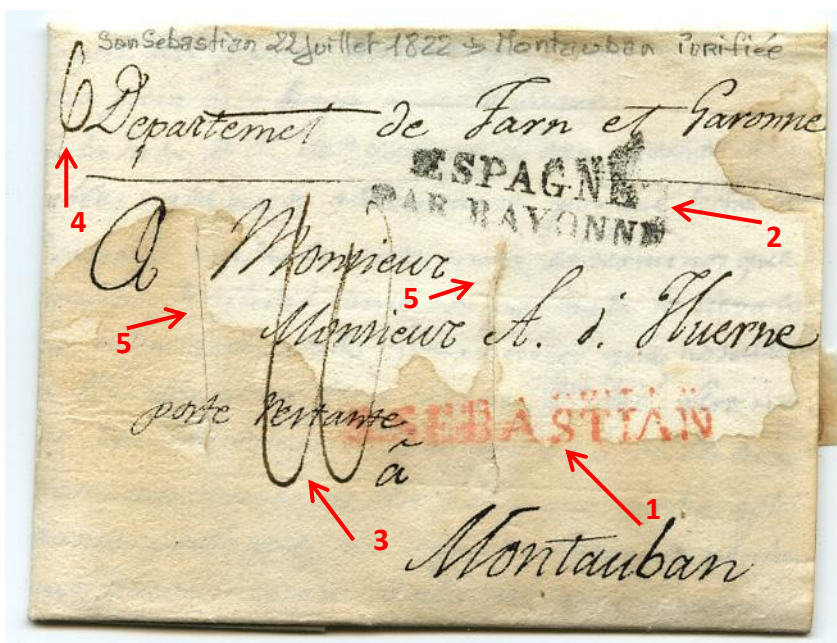 San Sebastian 22 Juillet 1822 → Montauban Purifiée
6 Departemet de Tarn et Garonne
4
ESPAGNE
PAR BAYONNE
2
A Monsieur
5
5
Monsieur A. d. Huerne
poste restante
S. SEBASTIAN
à
1
3
Montauban